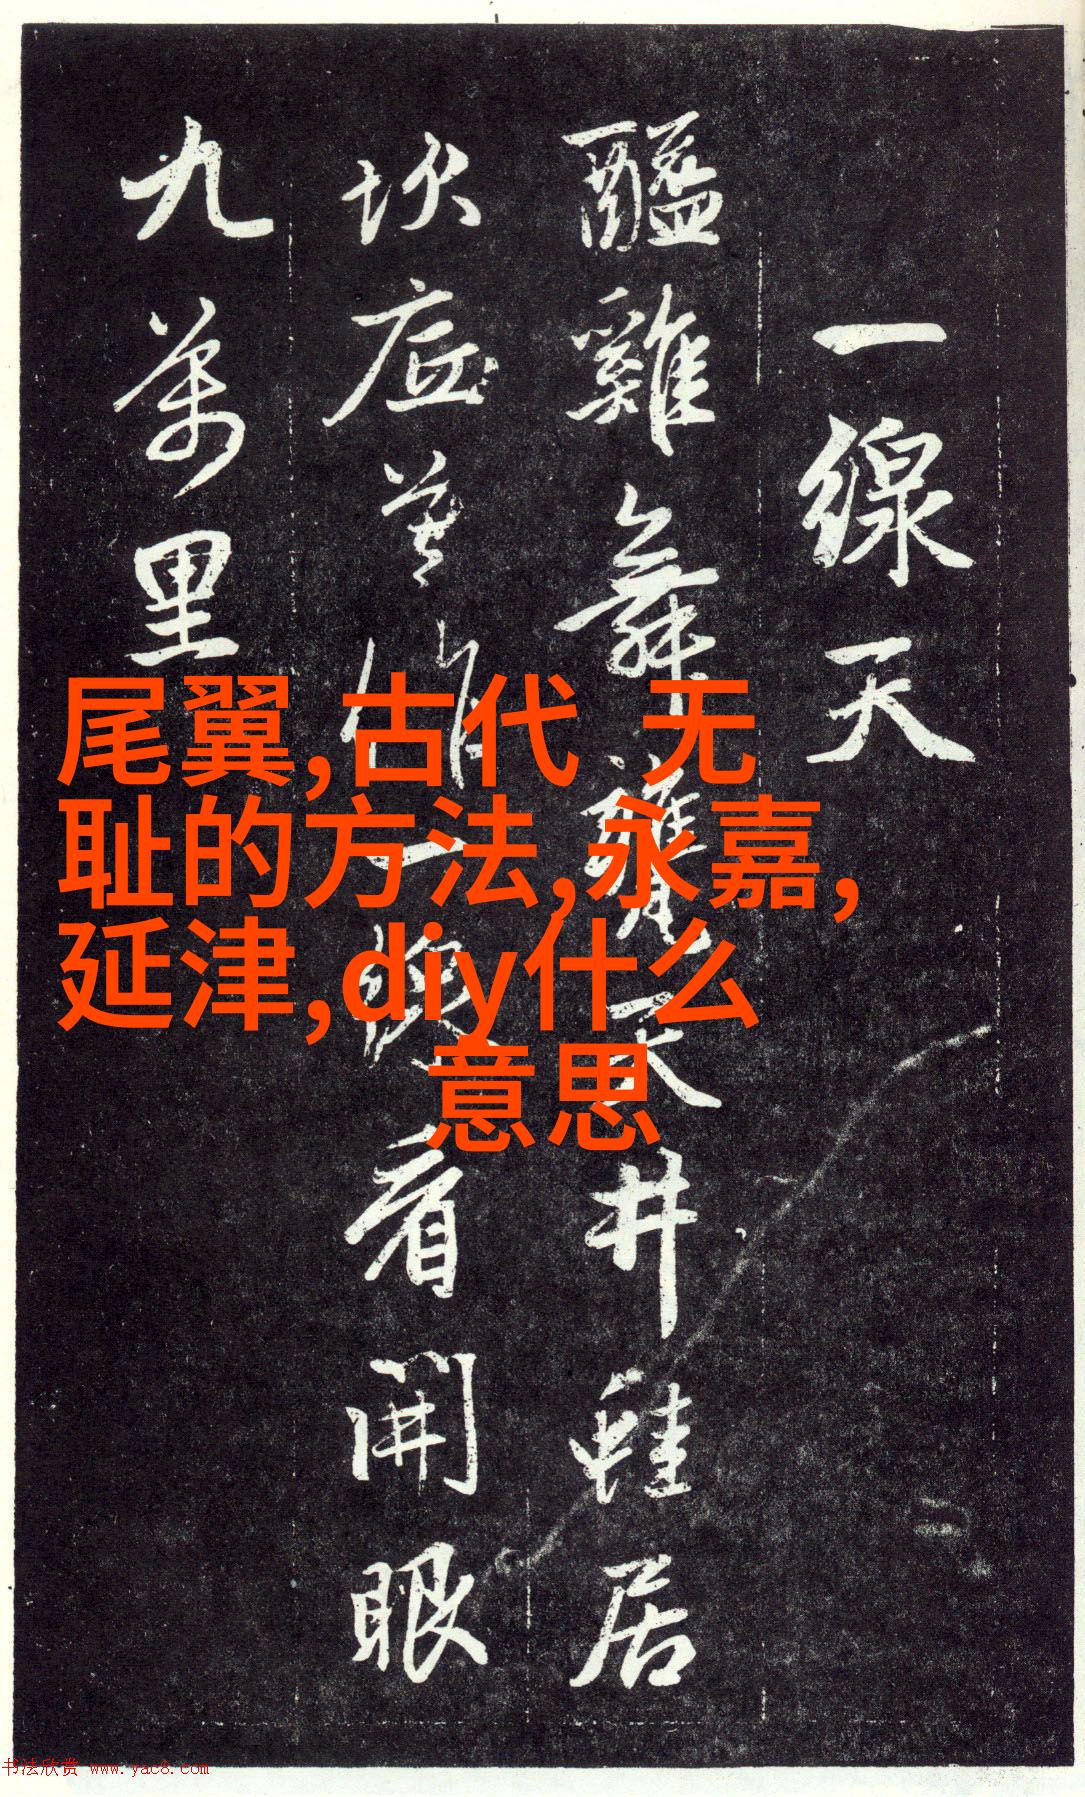 一線天
醯雞舞甕天井蛙居
坎底莫作一隙看開眼
九萬里
尾翼,古代 无
耻的方法,永嘉,
延津,diy什么
意思
书法欣赏 www.yac8.com